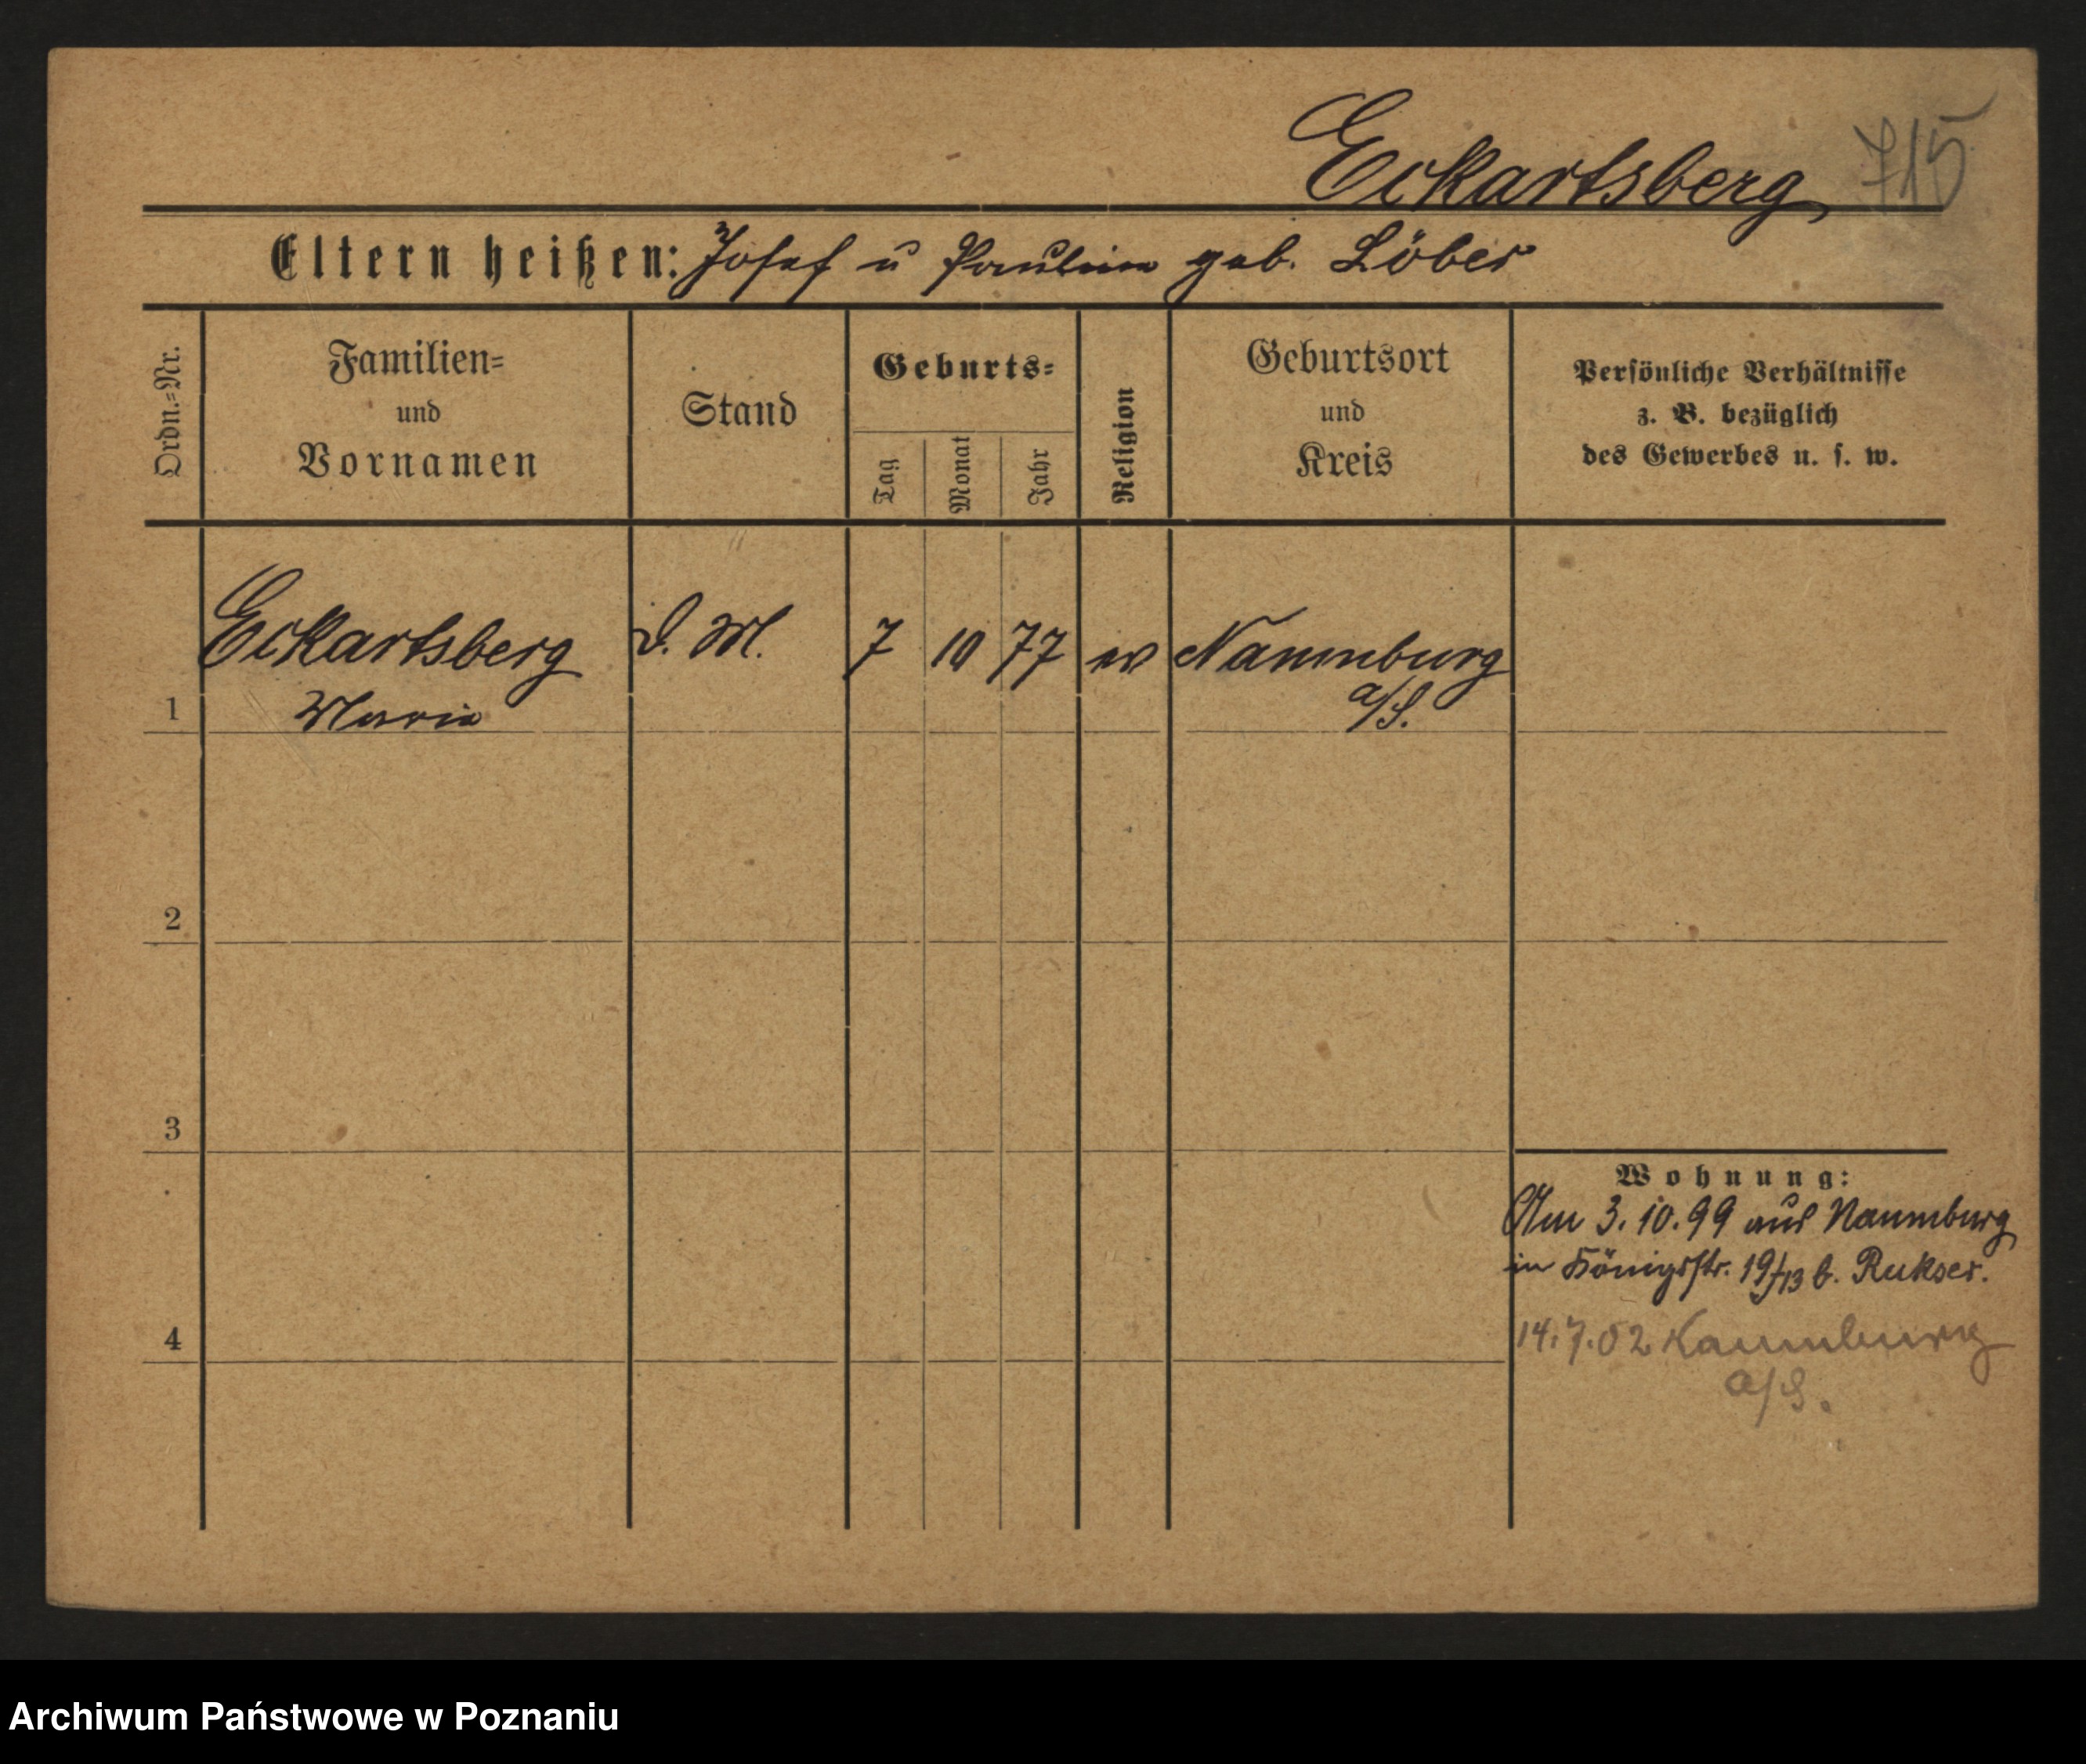 Eckartsberg 715
Eltern heißen: Josef u Pauline geb. Löber
Ordn.=Nr.
Familien=
und
Vornamen
Stand
Geburts=
Tag
Monat
Jahr
Religion
Geburtsort
und
Kreis
Persönliche Verhältnisse
z. B. bezüglich
des Gewerbes u. s. w.
Eckartsberg D. M. 7 10 77 Naumburg
1 Maria a/S.
2
3
Wohnung:
Am 3.10.99 aus Naumburg
in Königstr. 19/13 b. Rukser.
4 14.7.02 Naumburg
a/S.
Archiwum Państwowe w Poznaniu